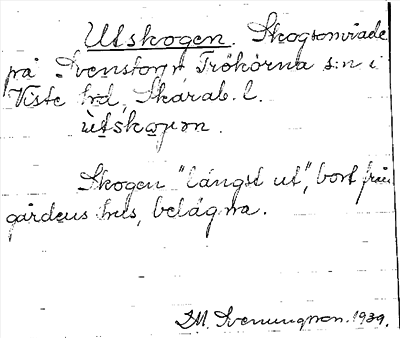 Utskogen. Skogsområde
på Svenstorp Trökörna s:n i
Viste hd, Skarab. l.
Skogen "längst ut", bort från
gårdens hus, belägna.
M. Svenungsson. 1939.